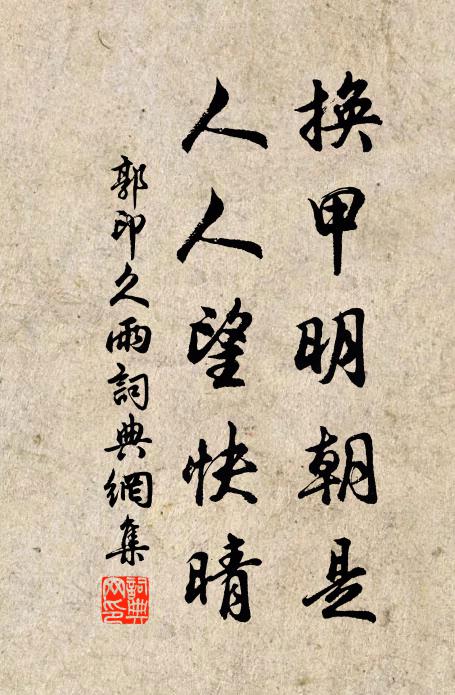 換甲明朝是
人人望快晴
郭印久雨詞典網集
詞典網印